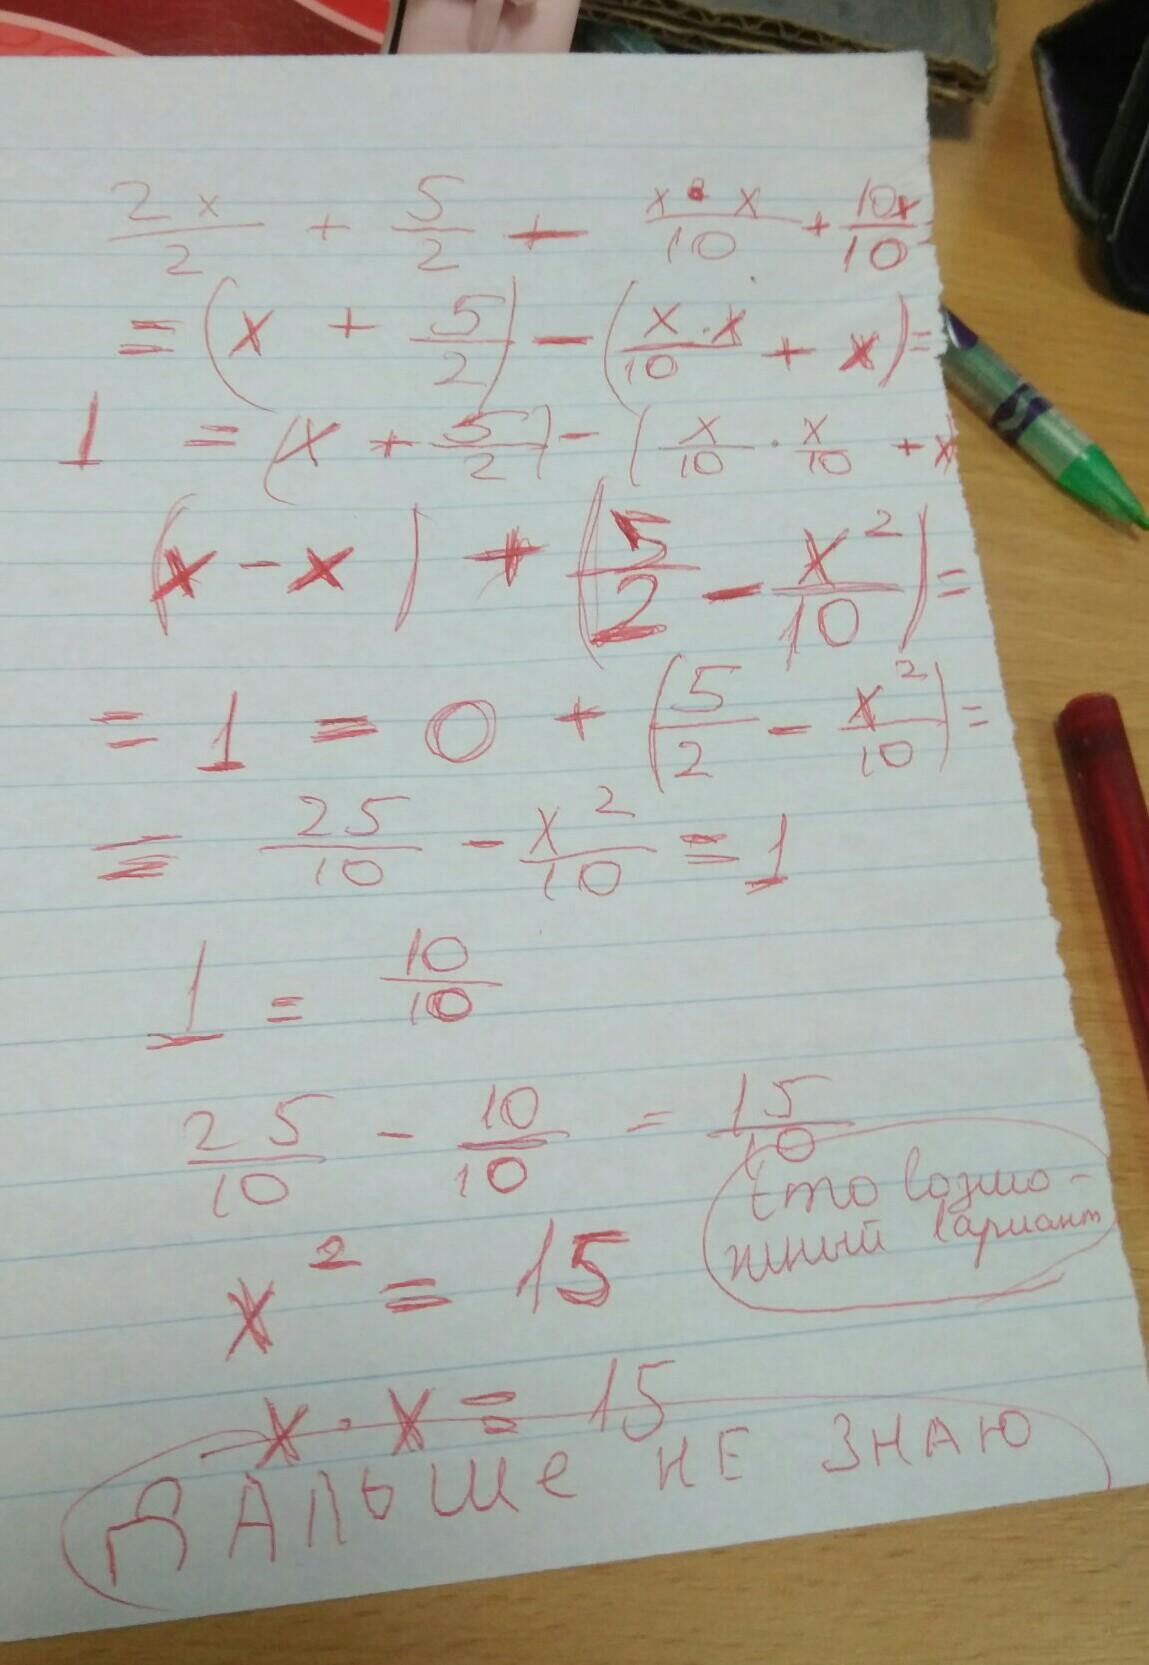 2x/2 + 5/2 + x·x/10 + 10x/10
= (x + 5/2) - (x·x/10 + x) =
1 = (x + 5/2) - (x/10 · x/10 + x
(x - x) + (5/2 - x²/10) =
= 1 = 0 + (5/2 - x²/10) =
= 25/10 - x²/10 = 1
1 = 10/10
25/10 - 10/10 = 15/10
Ето возмо-
жный вариант
x² = 15
x · x = 15
ДАЛЬШЕ НЕ ЗНАЮ